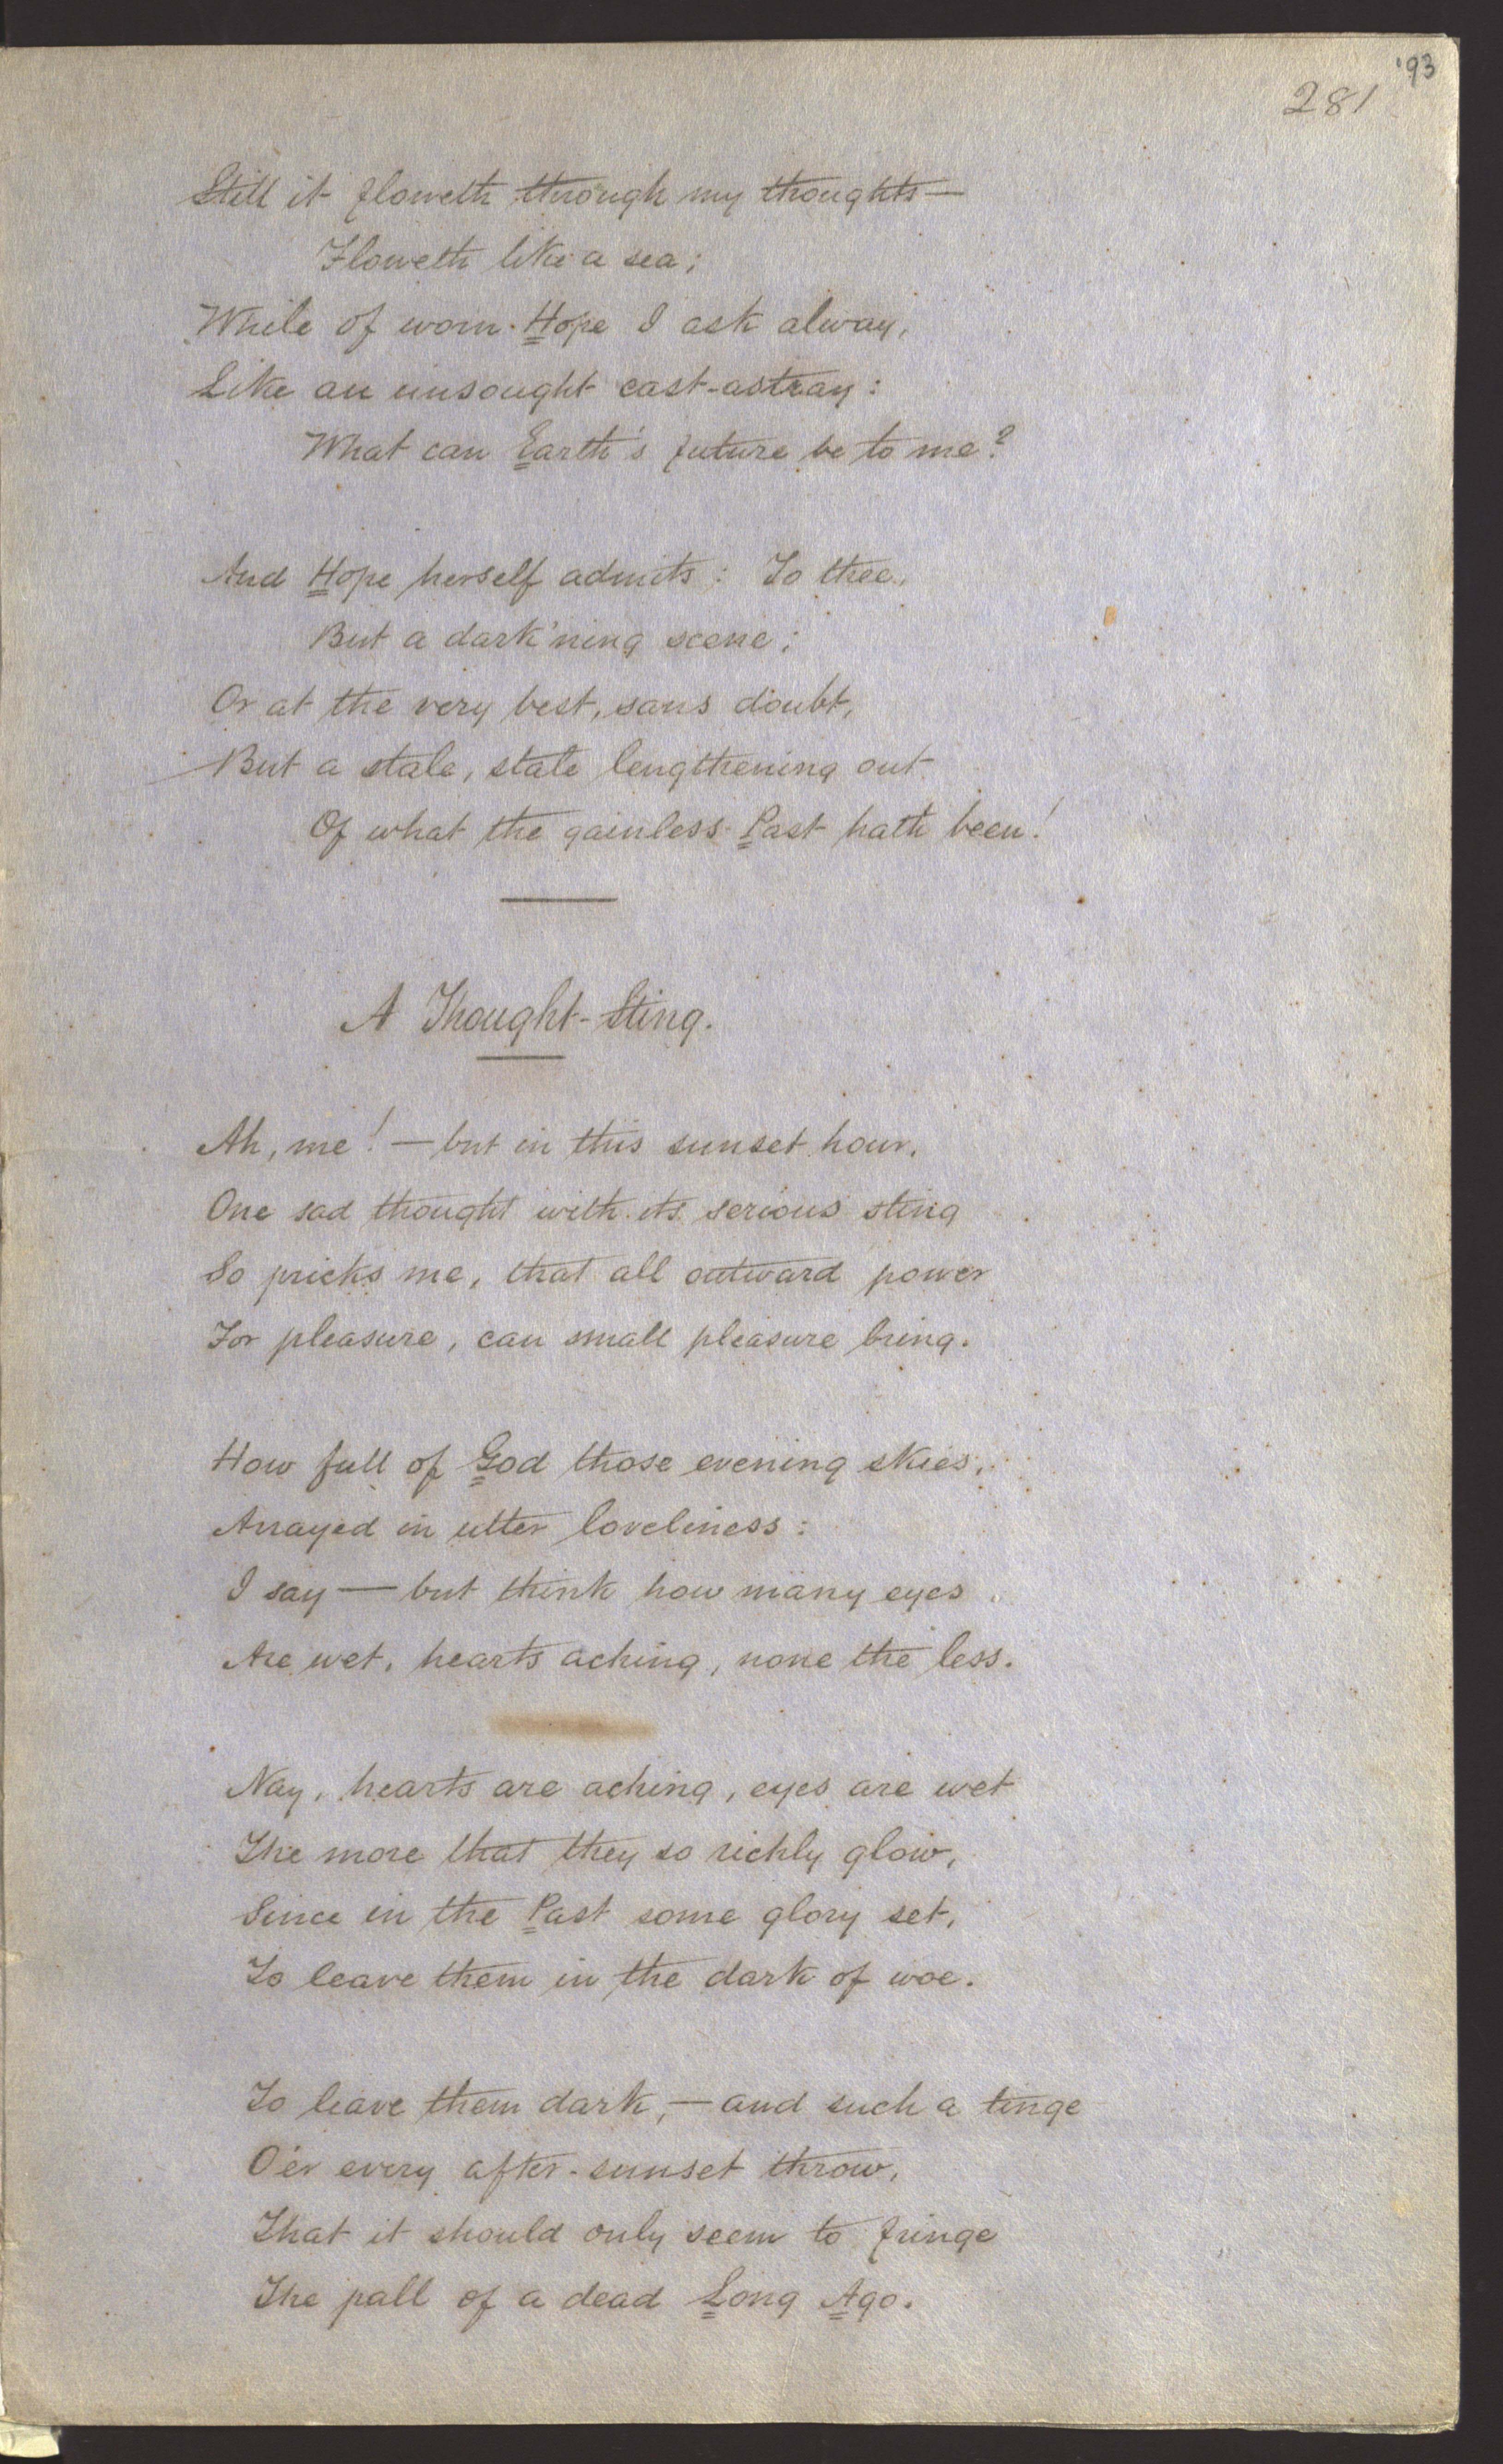 '93
281
Still it floweth through my thoughts—
Floweth like a sea;
While of worn Hope I ask alway,
Like an unsought cast-astray:
What can Earth's future be to me?
And Hope herself admits: To thee,
But a dark'ning scene;
Or at the very best, sans doubt,
But a stale, stale lengthening out
Of what the gainless Past hath been!
A Thought-Sting.
Ah, me! — but in this sunset hour,
One sad thought with its serious sting
So pricks me, that all outward power
For pleasure, can small pleasure bring.
How full of God those evening skies,
Arrayed in utter loveliness:
I say — but think how many eyes
Are wet, hearts aching, none the less.
Nay, hearts are aching, eyes are wet
The more that they so richly glow,
Since in the Past some glory set,
To leave them in the dark of woe.
To leave them dark, — and such a tinge
O'er every after-sunset throw,
That it should only seem to fringe
The pall of a dead Long Ago.